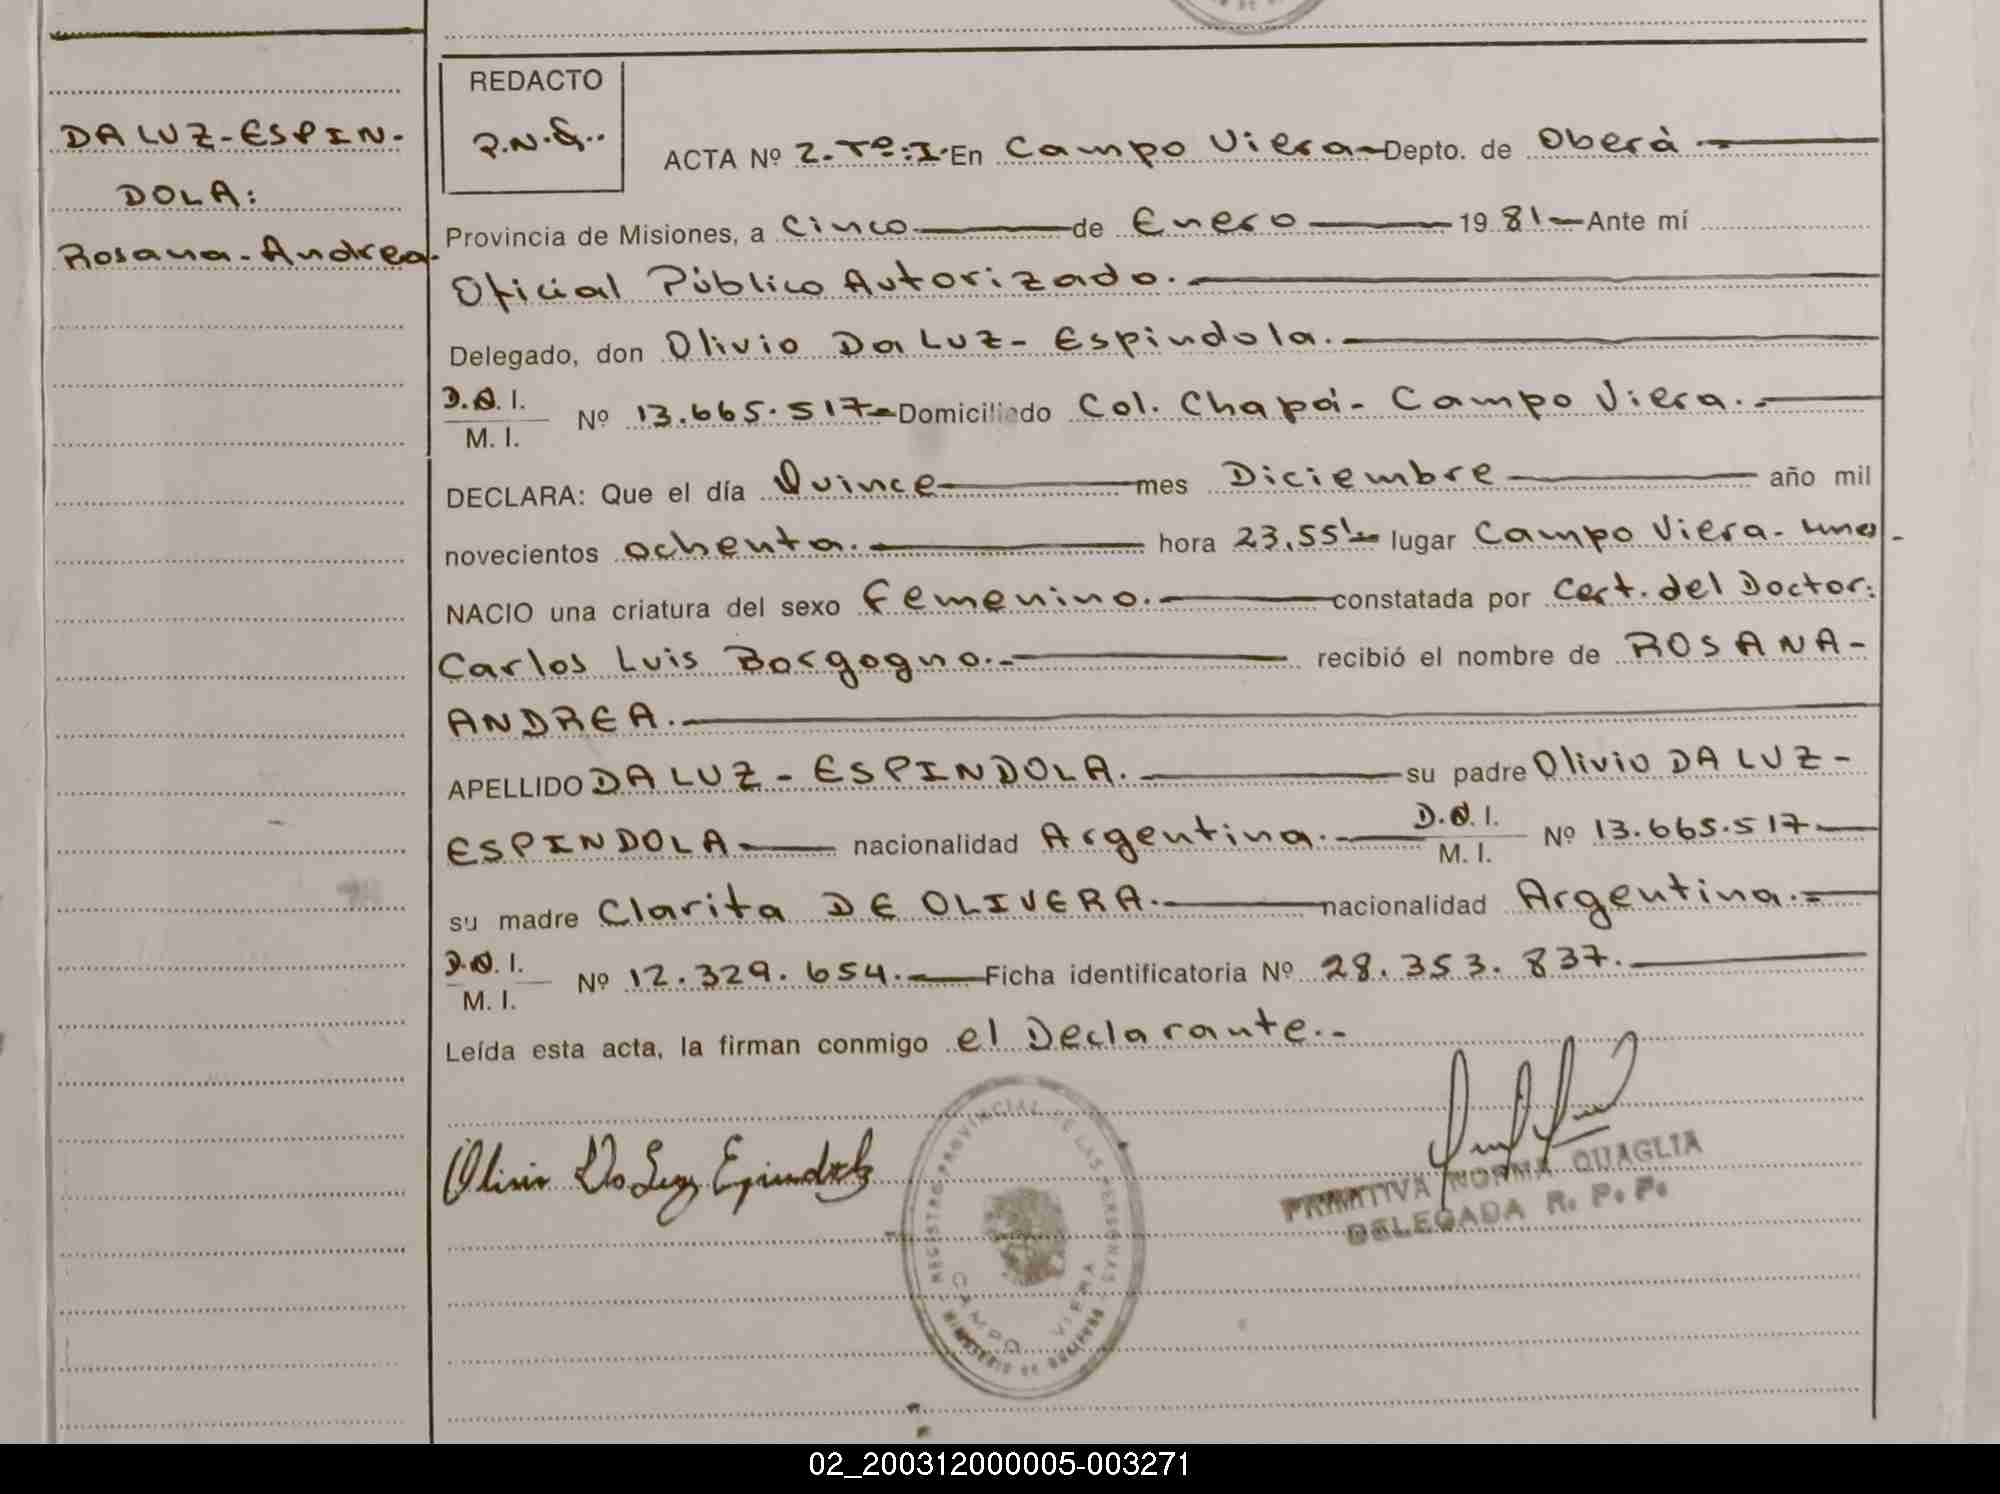 DA LUZ-ESPIN-
DOLA:
Rosana-Andrea.
REDACTO
P.N.Q..
ACTA Nº 2-Tº:I- En Campo Viera- Depto. de Oberà
Provincia de Misiones, a Cinco de Enero 1981- Ante mí
Oficial Público Autorizado.
Delegado, don Olivio Da Luz- Espindola.
D.N.I.
M. I. Nº 13.665.517- Domiciliado Col. Chapá- Campo Viera.-
DECLARA: Que el día Quince mes Diciembre año mil
novecientos ochenta. hora 23,55'- lugar Campo Viera- Mnes.
NACIO una criatura del sexo femenino. constatada por Cert. del Doctor:
Carlos Luis Borgogno.- recibió el nombre de ROSANA-
ANDREA.
APELLIDO DA LUZ - ESPINDOLA. su padre Olivio DA LUZ-
ESPINDOLA nacionalidad Argentina. D.N.I.
M. I. Nº 13.665.517.
su madre Clarita DE OLIVERA. nacionalidad Argentina.-
D.N.I.
M. I. Nº 12.329.654. Ficha identificatoria Nº 28.353.837.
Leída esta acta, la firman conmigo el Declarante.-
Olivio Da Luz Espindola
REGISTRO PROVINCIAL DE LAS PERSONAS
CAMPO VIERA
MINISTERIO DE GOBIERNO
PRIMITIVA NORMA QUAGLIA
DELEGADA R. P. P.
02_200312000005-003271